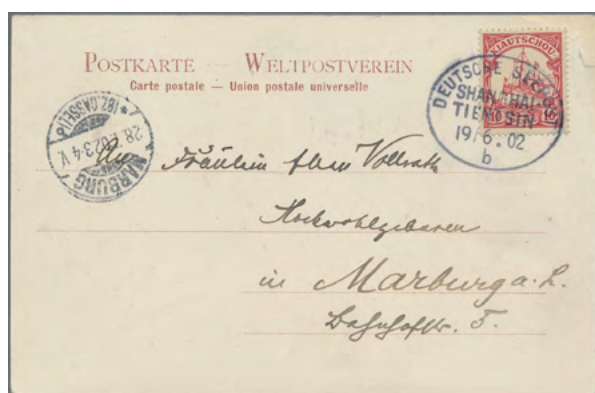 POSTKARTE — WELTPOSTVEREIN
Carte postale — Union postale universelle
KIAUTSCHOU
10 10
DEUTSCHE SEEPOST
SHANGHAI
TIENTSIN
19/6.02
b
MARBURG
*(BZ. CASSEL)*
28. 02 3-4 V.
An Fräulein Ellen Vollrath
Hochwohlgeboren
in Marburg a. L.
Bahnhofstr. 5.